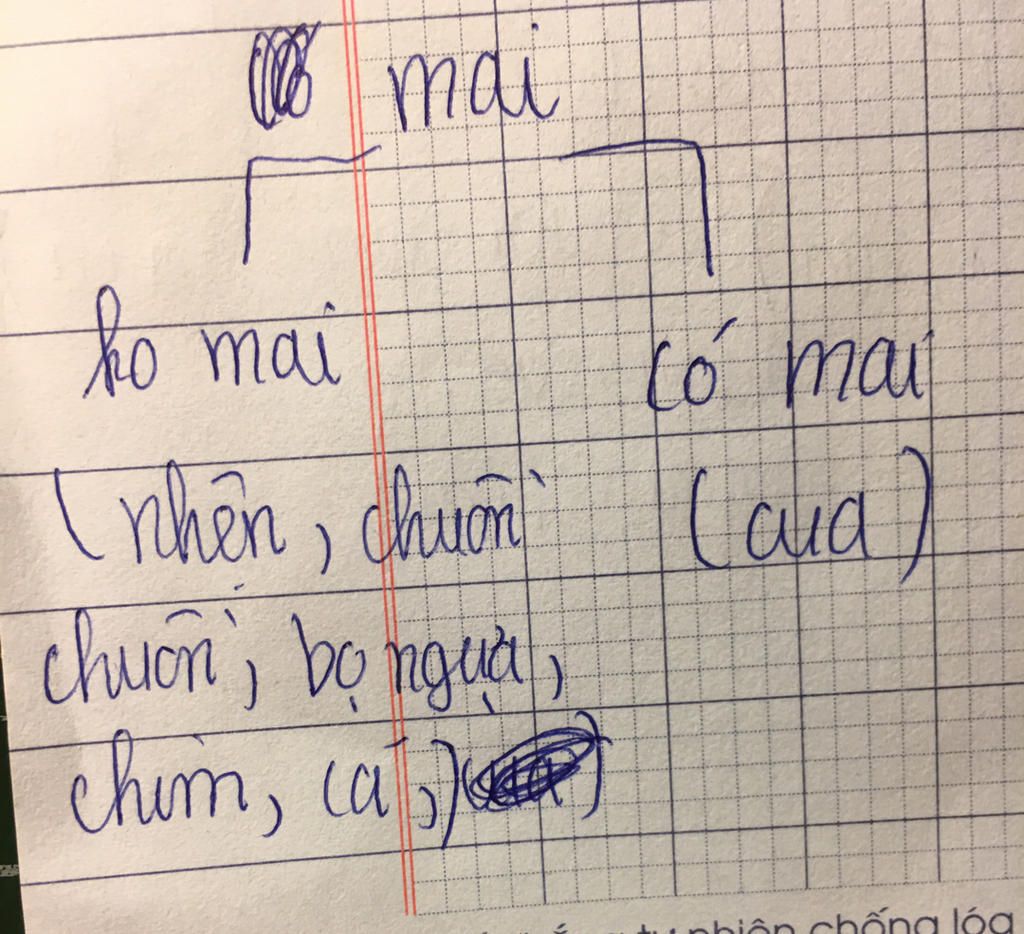 mai
ko mai
có mai
(nhện, chuồn
chuồn, bọ ngựa,
chim, cá,)
(cua)
tự nhiên chống lóa